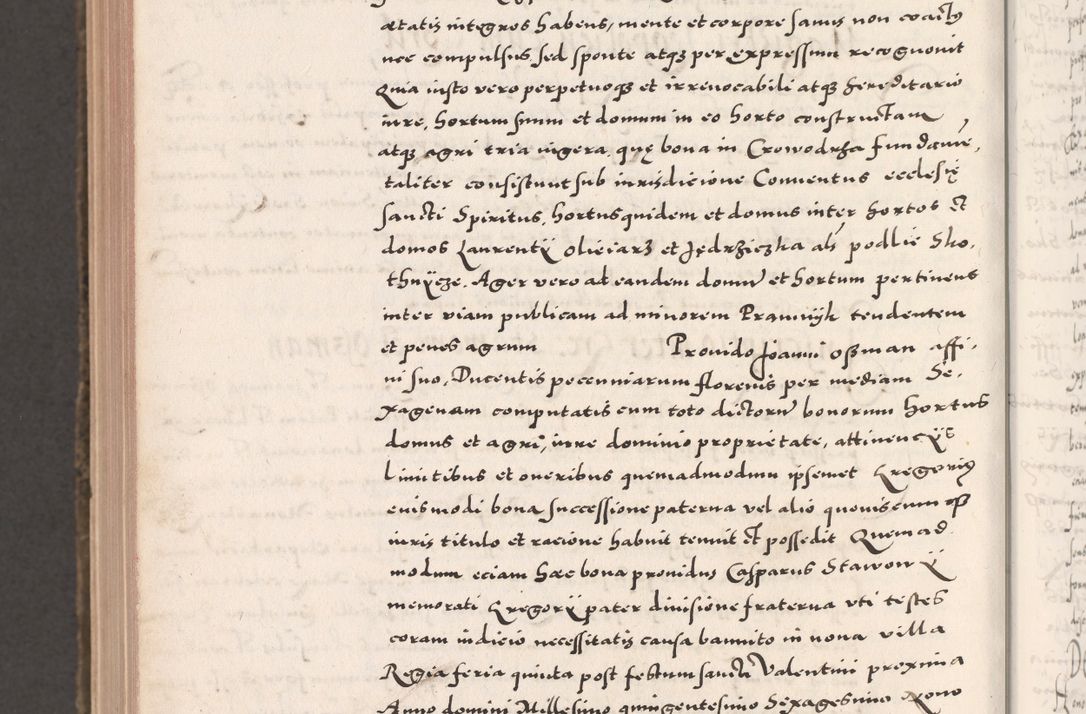 ætatis integros habens, mente et corpore sanus non coactus
nec compulsus, sed sponte atqꝫ per expressum recognouit
Quia iusto vero perpetuoqꝫ et irreuocabili atqꝫ hereditario
iure, hortum suum et domum in eo horto constructam
atqꝫ agri tria iugera, quę bona in Crowodrza fundamē,
taliter consistunt sub iurisdicione Conuentus ecclesię
sancti Spiritus, hortus quidem et domus inter hortos et
domos Laurentÿ Olieiarz et Jędrzieizka als podlie Sko,
thnÿcze. Ager vero ad eandem domū et hortum pertinens
inter viam publicam ad minorem Prannÿk tendentem
et penes agrum Prouido Joanni Osman affi,
ni suo, Ducentis pecenniarum florenis per mediam Se,
xagenam computatis cum toto dictorū bonorum hortus
domus et agri, iure dominio proprietate, attinencÿs
limitibus et oneribus quemadmodum ipsemet Gregorius
eiusmodi bona successione paterna vel alio quouiscumqꝫ
iuris titulo et racione habuit tenuit et possedit Quemad
modum eciam hæc bona prouidus Casparus Stawowÿ
memorati Gregorÿ pater diuisione fraterna vti testes
coram iudicio necessitatis causa bannito in noua villa
Regia feria quinta post festum sancti Valentini proxima
Anno domini Millesimo quingentesimo Sexagesimo Nono